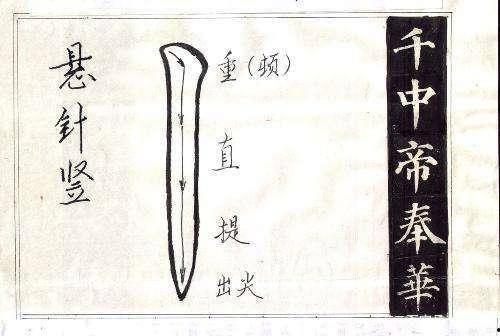 悬针竖
重(顿)
直
提
出尖
千中帝奉華